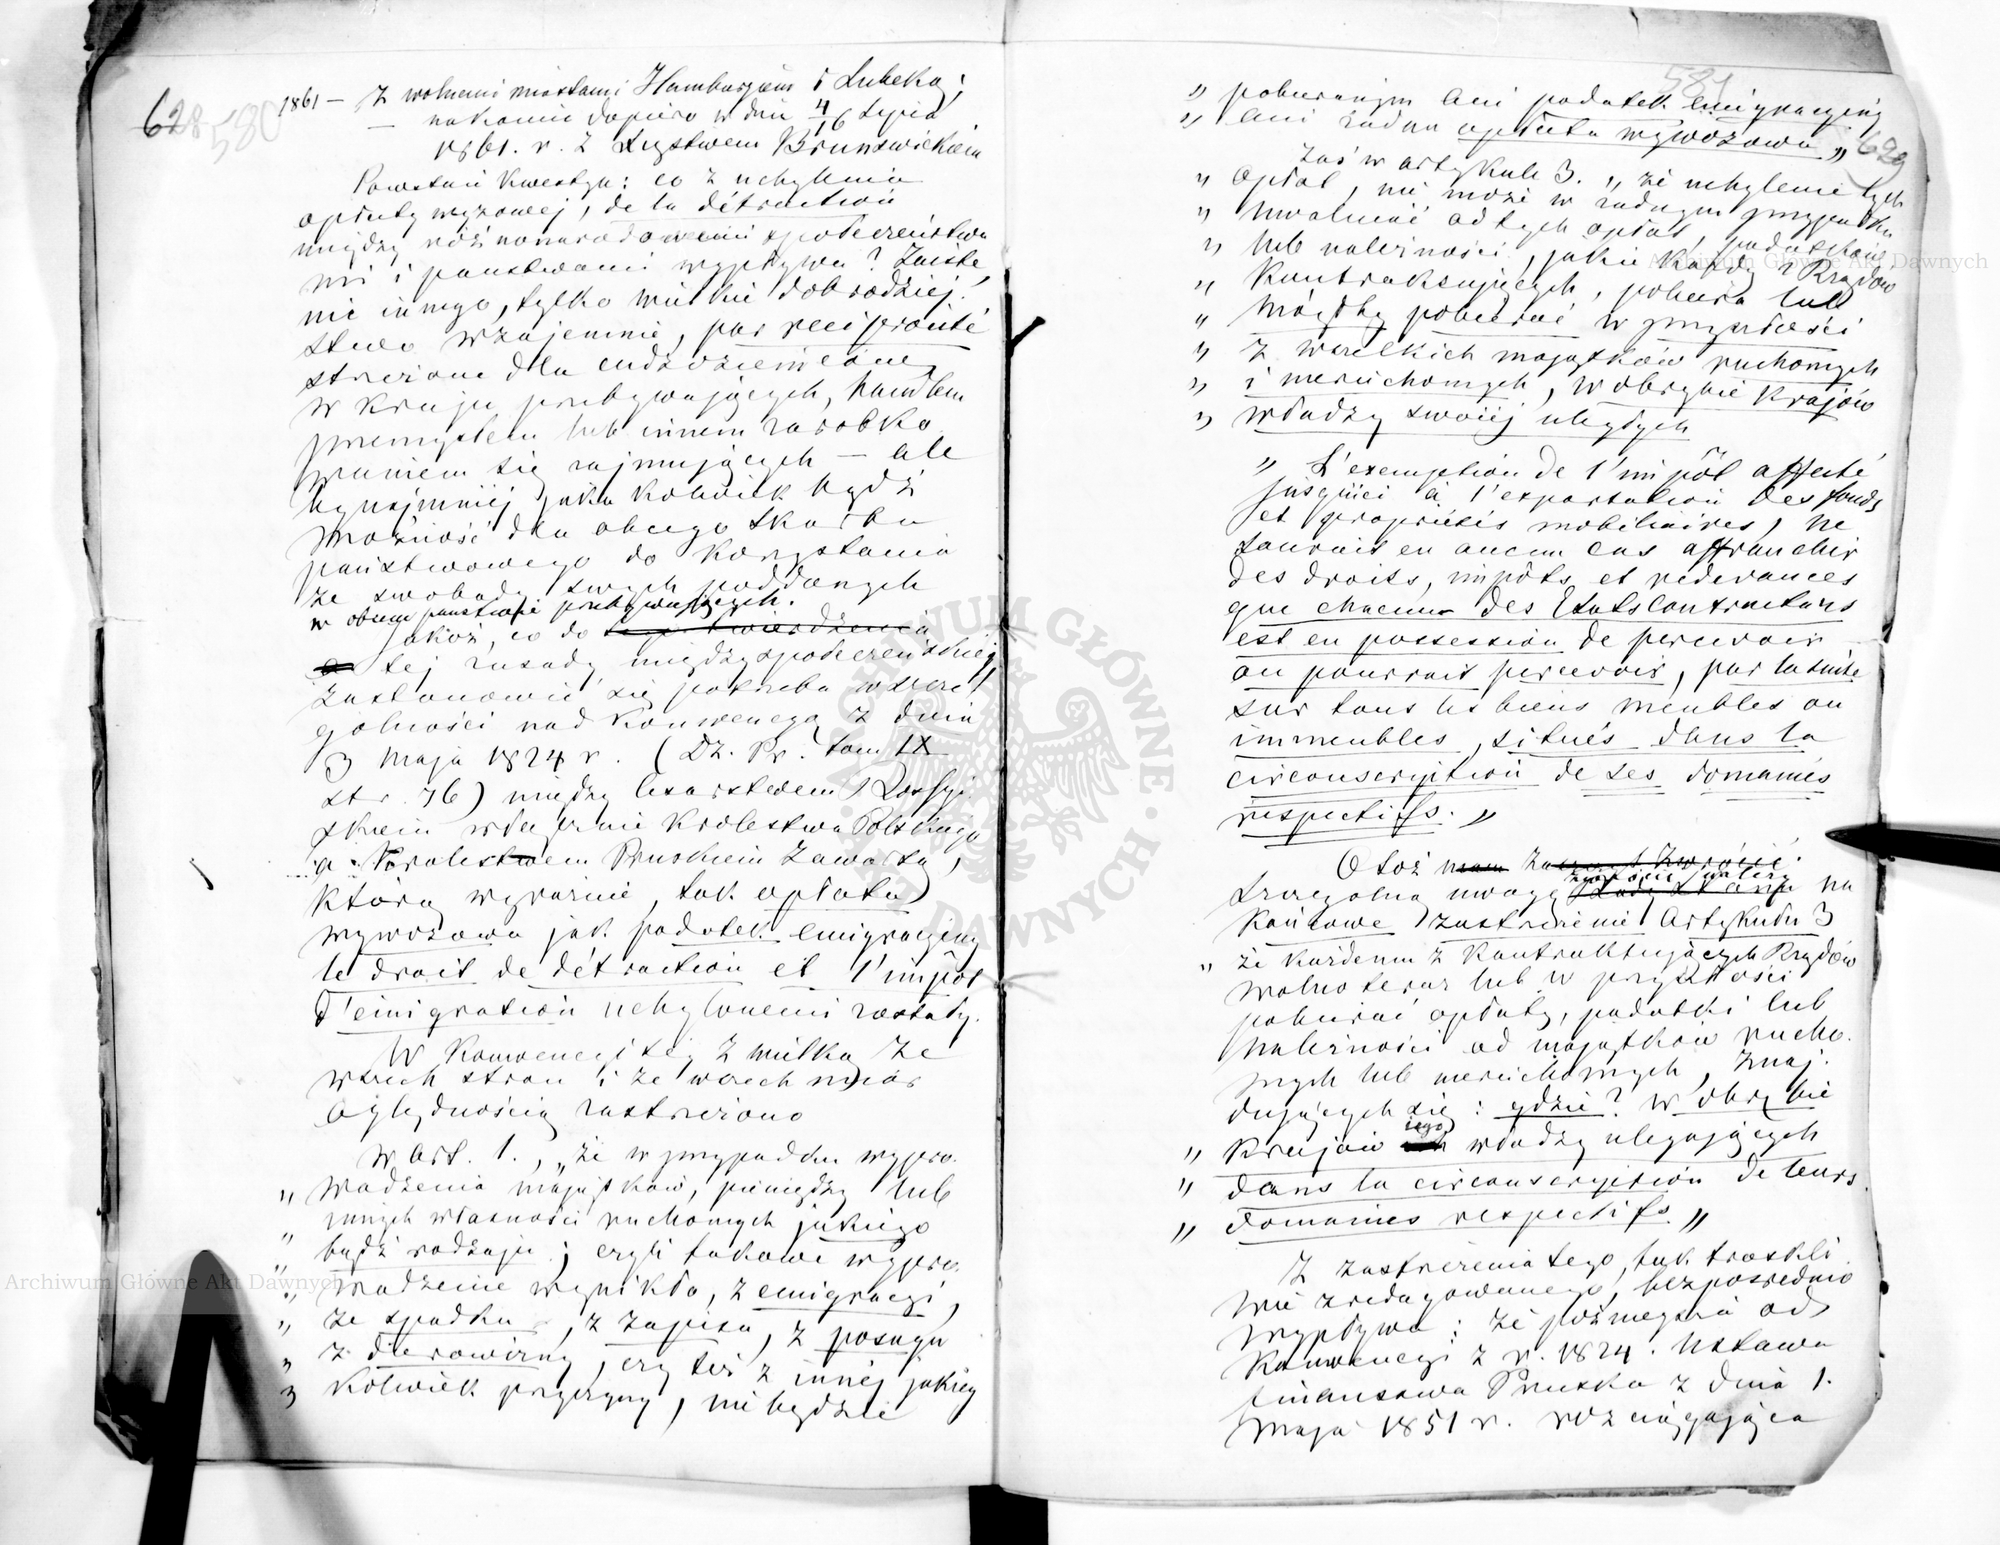 628 580
1861 — Z wolnemi miastami Hamburgiem i Lubeką;
— nakoniec dopiero w dniu 4/16 Lipca
1861. r. z Xięstwem Brunświckiém
Powstań kwestya: co z uchylenia
opłaty wywozowej, de la détraction
między różnonarodowemi społeczeństwa
mi i państwami wypływa? Zaiste,
nic innego, tylko wielkie dobrodziej-
stwo wzajemnie, par reciprocité
strzeżone dla cudzoziemców
w kraju przebywających, handlem
przemysłem lub innem zarobko
waniem się zajmujących — ale
bynajmniej jaka kolwiek bądź
możność dla obcego skarbu
państwowego do korzystania
ze swobody swych poddanych
w obcem państwie przebywających.
Jakoż, co do
tej zasady międzyspołeczeńskiej,
zastanowić się potrzeba w szcze-
gólności nad Konwencyą z dnia
3 Maja 1824 r. (Dz. Pr. tom IX
str. 76) między Cesarstwem Rossyj
skiem włącznie Królestwa Polskiego
a Królestwem Pruskiem zawartą,
którą wyraźnie, tak opłata
wywozowa jak podatek emigracyjny
le droit de détraction et l'impôt
d'émigration uchylonemi zostały.
W Konwencyi tej z wielką ze
wszech stron i ze wszech miar
oględnością zastrzeżono
w Art. 1., „że w przypadku wypro-
„ wadzenia majątków, pieniędzy lub
„ innych własności ruchomych jakiego
„ bądź rodzaju; czyli takowe wypro-
„ wadzenie wynikło, z emigracyi,
„ ze spadku, z zapisu, z posagu
„ z darowizny, czy też z innéj jakiej
„ kolwiek przyczyny, nie będzie
581
629
„ pobieranym ani podatek emigracyjny
„ ani żadna opłata wywozowa„
zaś w artykule 3. „ że uchylenie tych
„ opłat, nie może w żadnym przypadku
„ uwalniać od tych opłat, podatków
„ lub należności, jakie każdy z Rządów
„ Kontraktujących, pobiera lub
„ mógłby pobierać w przyszłości
„ z wszelkich majątków ruchomych
„ i nieruchomych, w obrębie krajów
„ władzy swojéj uległych
„ L'exemption de l'impôt affecté
jusqu'ici à l'exportation des fonds
et propriétés mobiliaires, ne
saurait en aucun cas affranchir
des droits, impôts et redevances
que chacun des Etats Contractans
est en possession de percevoir
ou pourrait percevoir, par la suite
sur tous les biens meubles ou
immeubles, situés dans la
circonscription de ses domaines
respectifs. „
Otoż
szczególną uwagę zwrócić należy na
końcowe zastrzeżenie Artykułu 3
„ że każdemu z Kontraktujących Rządów
wolno teraz lub w przyszłości
pobierać opłaty, podatki lub
należności od majątków rucho-
mych lub nieruchomych, znaj-
dujących się: gdzie? w obrębie
„ Krajów jego władzy ulegających
„ dans la circonscription de leurs
„ domaines respectifs „
Z zastrzeżenia tego, tak troskli
wie zredagowanego, bezpośrednio
wypływa: że późniejsza od
Konwencyi z r. 1824. Ustawa
finansowa Pruska z dnia 1.
Maja 1851 r. rozciągająca